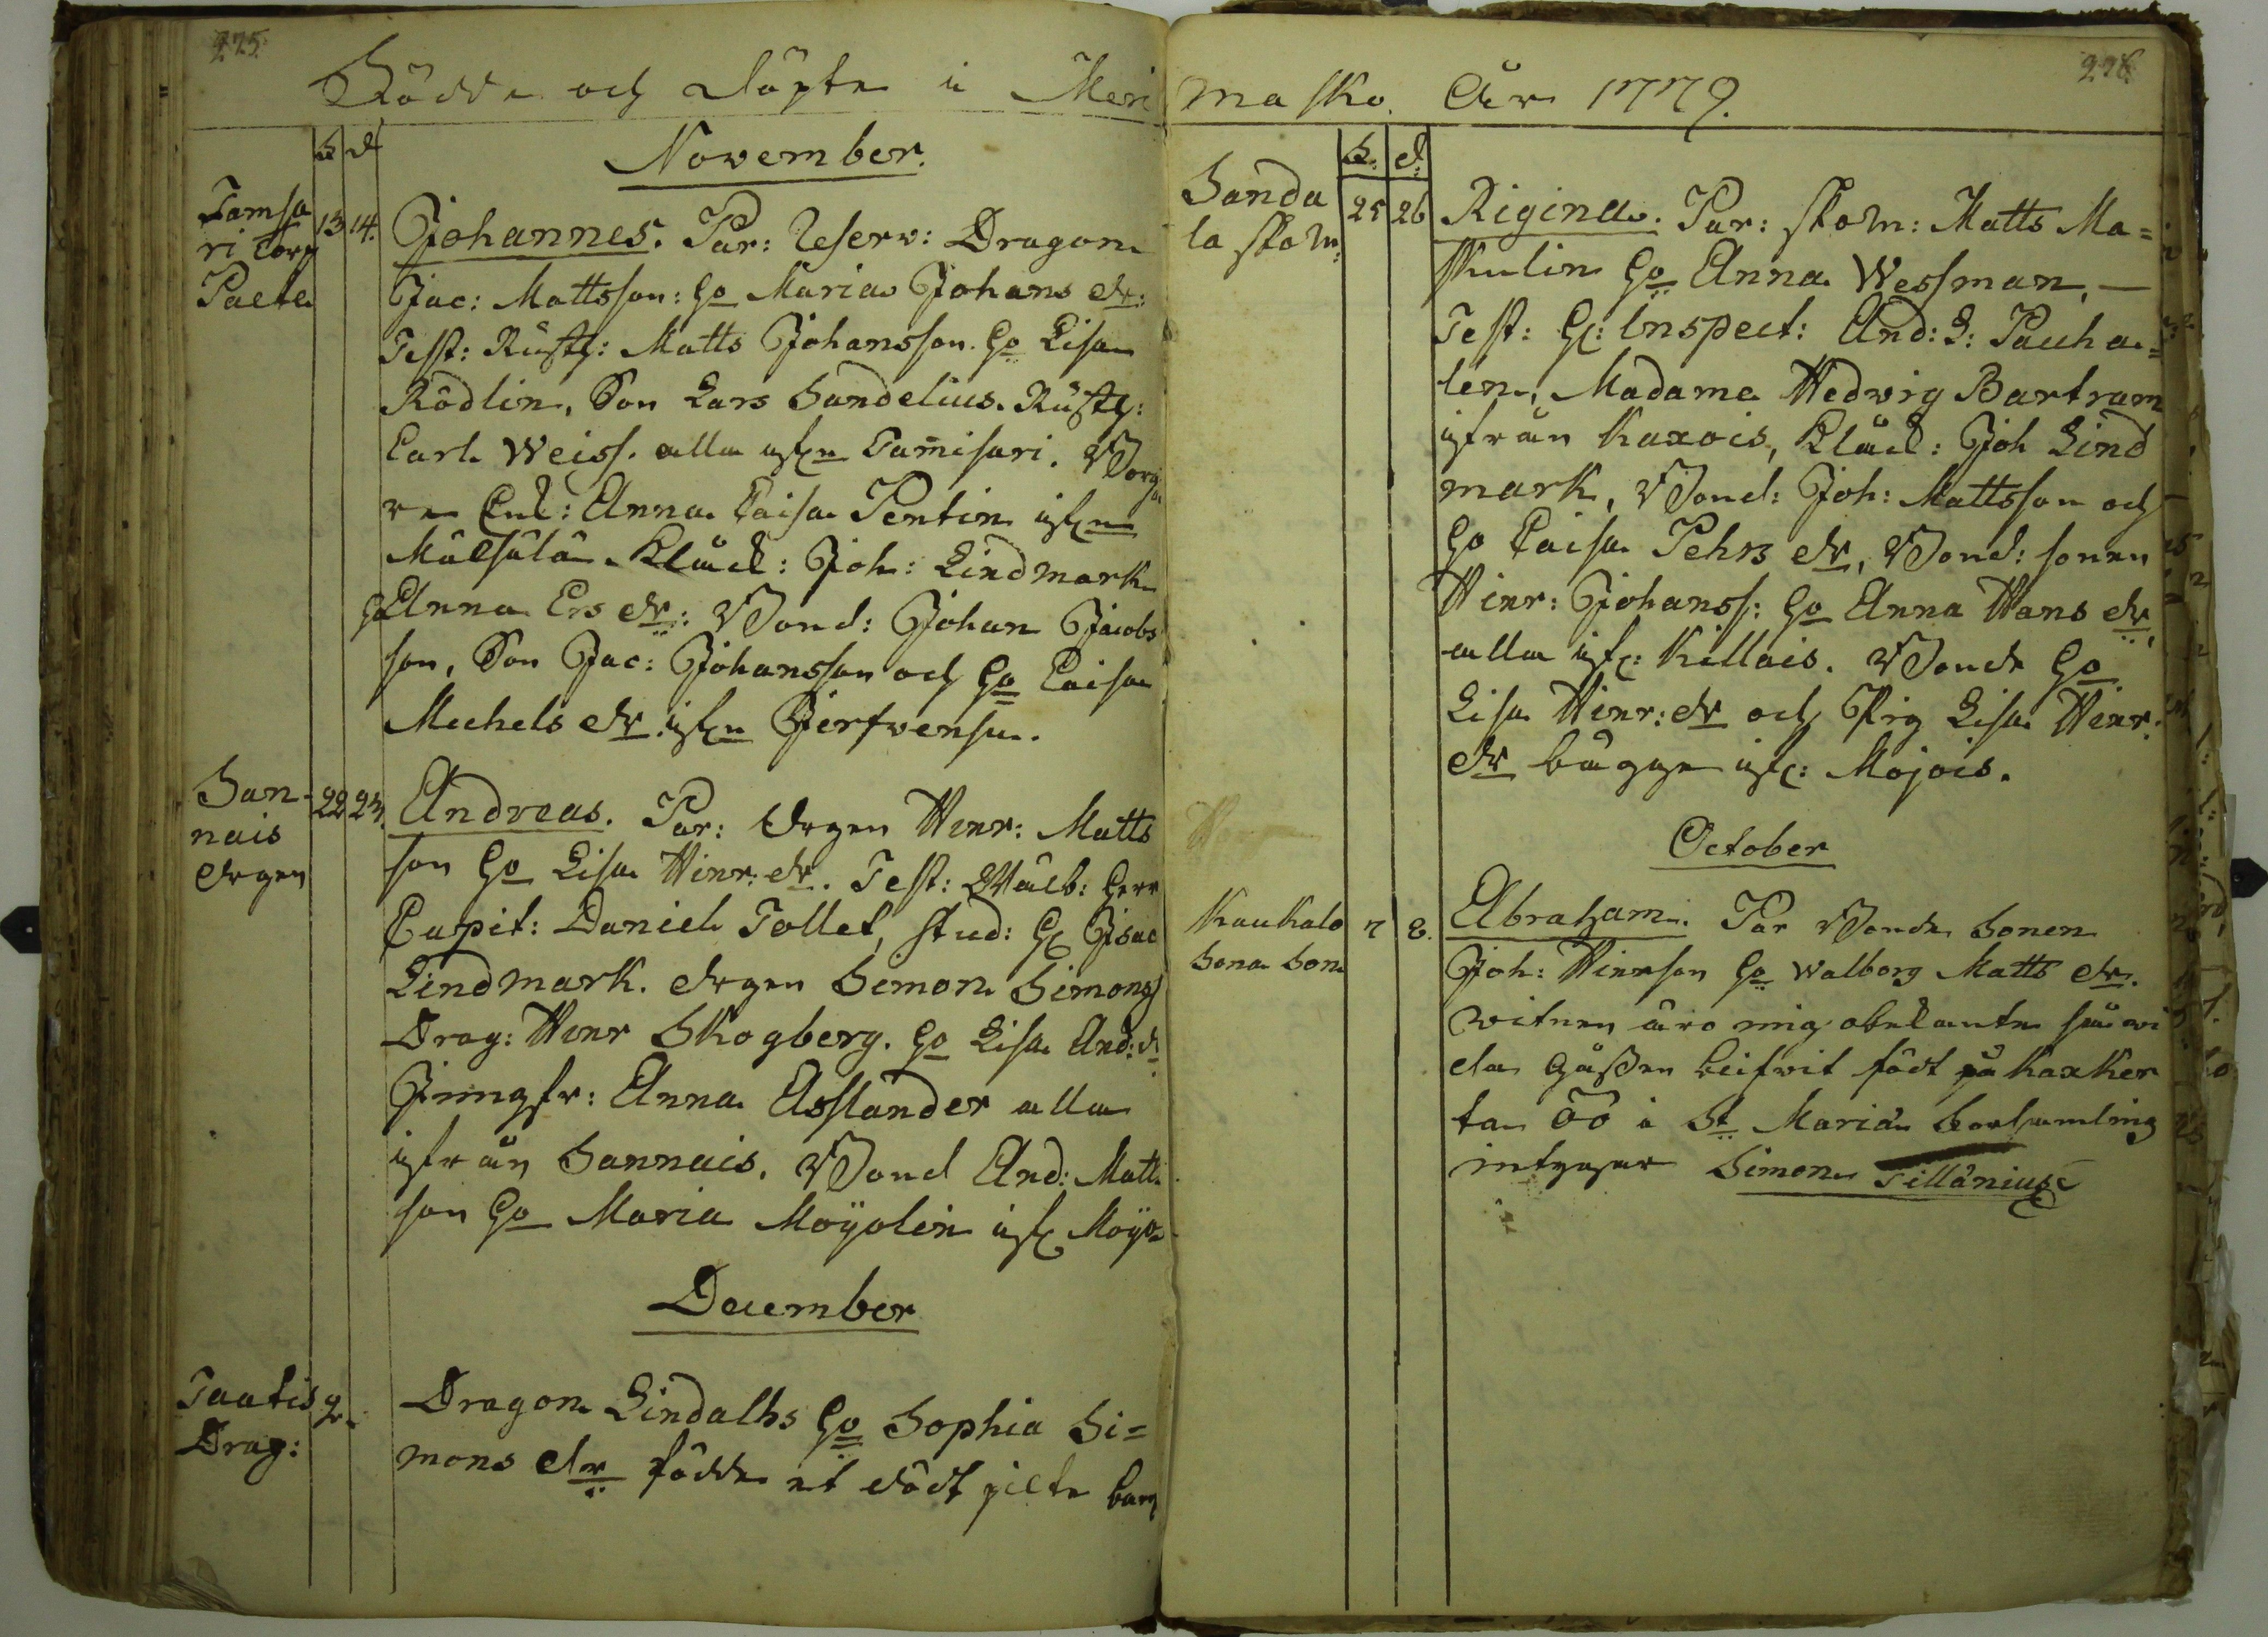 275.
Födde och döpte i Meri
f d
November.
Tamsa
ri Torp
Paeta
13 14.
Johannes. Par: Reserv: Dragon
Jac: Mattsson: Ho Maria Johans dr:
Test: Rusth: Matts Johansson. Ho Lisa
Rödlin, Son Lars Sandelius. Rusth:
Carl Weiss. alla ifrn Tamisari. Borga
re Enk: Anna Caisa Pentin ifrn
Målsålå. Klåck: Joh: Lindmark
Ho Anna Ers dr: Bond: Johan Jacobs
son, Son Jac: Johansson och Ho Caisa
Michels dr ifrn Jerfvensu.
San-
nais
drgen
22 23.
Andreas. Par: drgen Henr: Matts
son Ho Lisa Hinr: dr. Test: Wälb: Herr
Capit: Daniel Tollet, Stud: H Isac
Lindmark. drgen Simon Simonss
Drag: Henr Skogberg. Ho Lisa And: d
Jungfr: Anna Assländer alla
ifrån Sannais. Bond And: Matts
son Ho Maria Moÿolin ifr Moÿo
December
Taatis
Drag:
9
Dragon Lindalhs Ho Sophia Si=
mons dr födde et dödt pilte barn
276.
masko. År 1779.
f. d:
Sanda
la skom:
25 26
Rigina. Par: skom: Matts Ma=
skulin Ho Anna Wessman. —
Test: H: Inspect: And: J: Pauha=
len, Madame Hedvig Bartram
ifrån Kaxois, Klåck: Joh Lind
mark, Bond: Joh: Mattsson och
Ho Caisa Pehrs dr, Bond: sonen
Hinr: Johanss: Ho Anna Hans dr,
alla ifr: Killais. Bonde Ho
Lisa Hinr: dr och Pig Lisa Henr:
dr bägge ifr: Mojois.
October
Kaukalo
bona Son
7 8.
Abraham. Par Bonde Sonen
Joh: Hinrson Ho Walborg Matts dr.
witnen äro mig obekante så wi
da Gåssen beifvit född på Kaxker
ta Öö i St Mariæ Församling
intygar Simon Tillänius